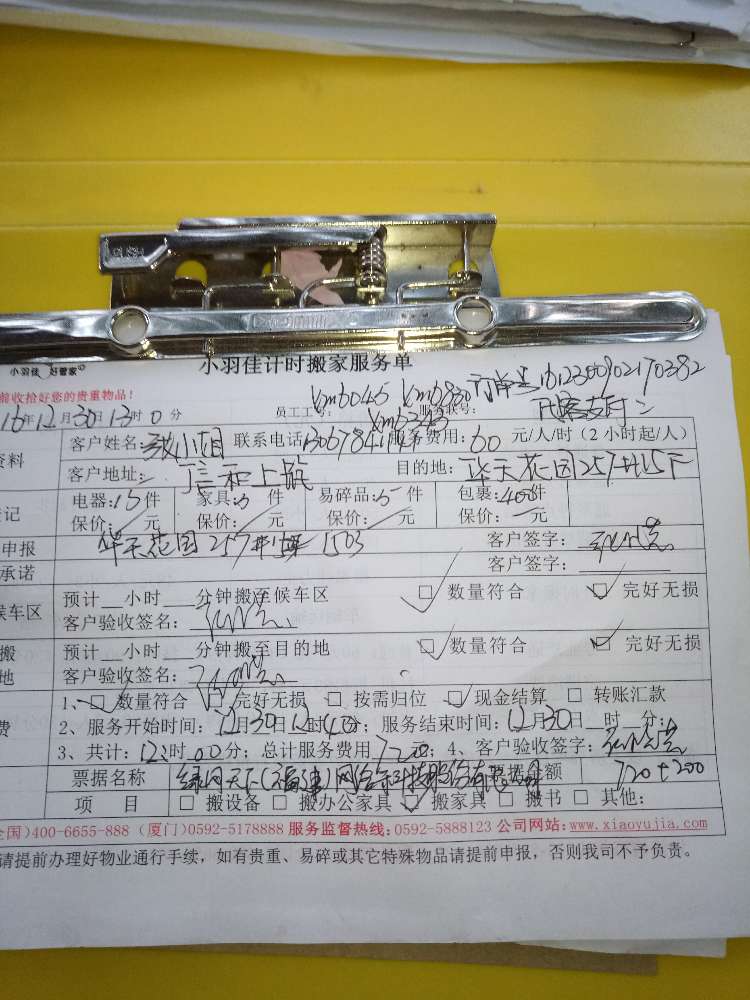 小羽佳 好管家
小羽佳计时搬家服务单
前收拾好您的贵重物品!
16年12月30日13时0分 员工工号: Xm6045 Xm6830 服务联号: 订单号
资料 客户姓名: 小姐 联系电话: 服务费用: 60 元/人/时 (2 小时起/人)
客户地址: 信和上筑 目的地: 华天花园257
登记 电器: 15件 家具: 件 易碎品: 件 包裹: 件
保价: 元 保价: 元 保价: 元 保价: 元
申报 华天花园 257 1503 客户签字:
承诺 客户签字:
候车区 预计__小时__分钟搬至候车区 □ 数量符合 □ 完好无损
客户验收签名:
搬 预计__小时__分钟搬至目的地 □ 数量符合 □ 完好无损
地 客户验收签名:
费 1、□ 数量符合 □ 完好无损 □ 按需归位 □ 现金结算 □ 转账汇款
2、服务开始时间: 12月30日12时40分; 服务结束时间: 12月30日__时__分;
3、共计: 12时00分; 总计服务费用 720; 4、客户验收签字:
票据名称 绿网天下(福建)网络科技股份有限公司 票据金额 720+200
项 目 □ 搬设备 □ 搬办公家具 □ 搬家具 □ 搬书 □ 其他:
全国)400-6655-888 (厦门)0592-5178888 服务监督热线:0592-5888123 公司网站:www.xiaoyujia.com
请提前办理好物业通行手续，如有贵重、易碎或其它特殊物品请提前申报，否则我司不予负责。